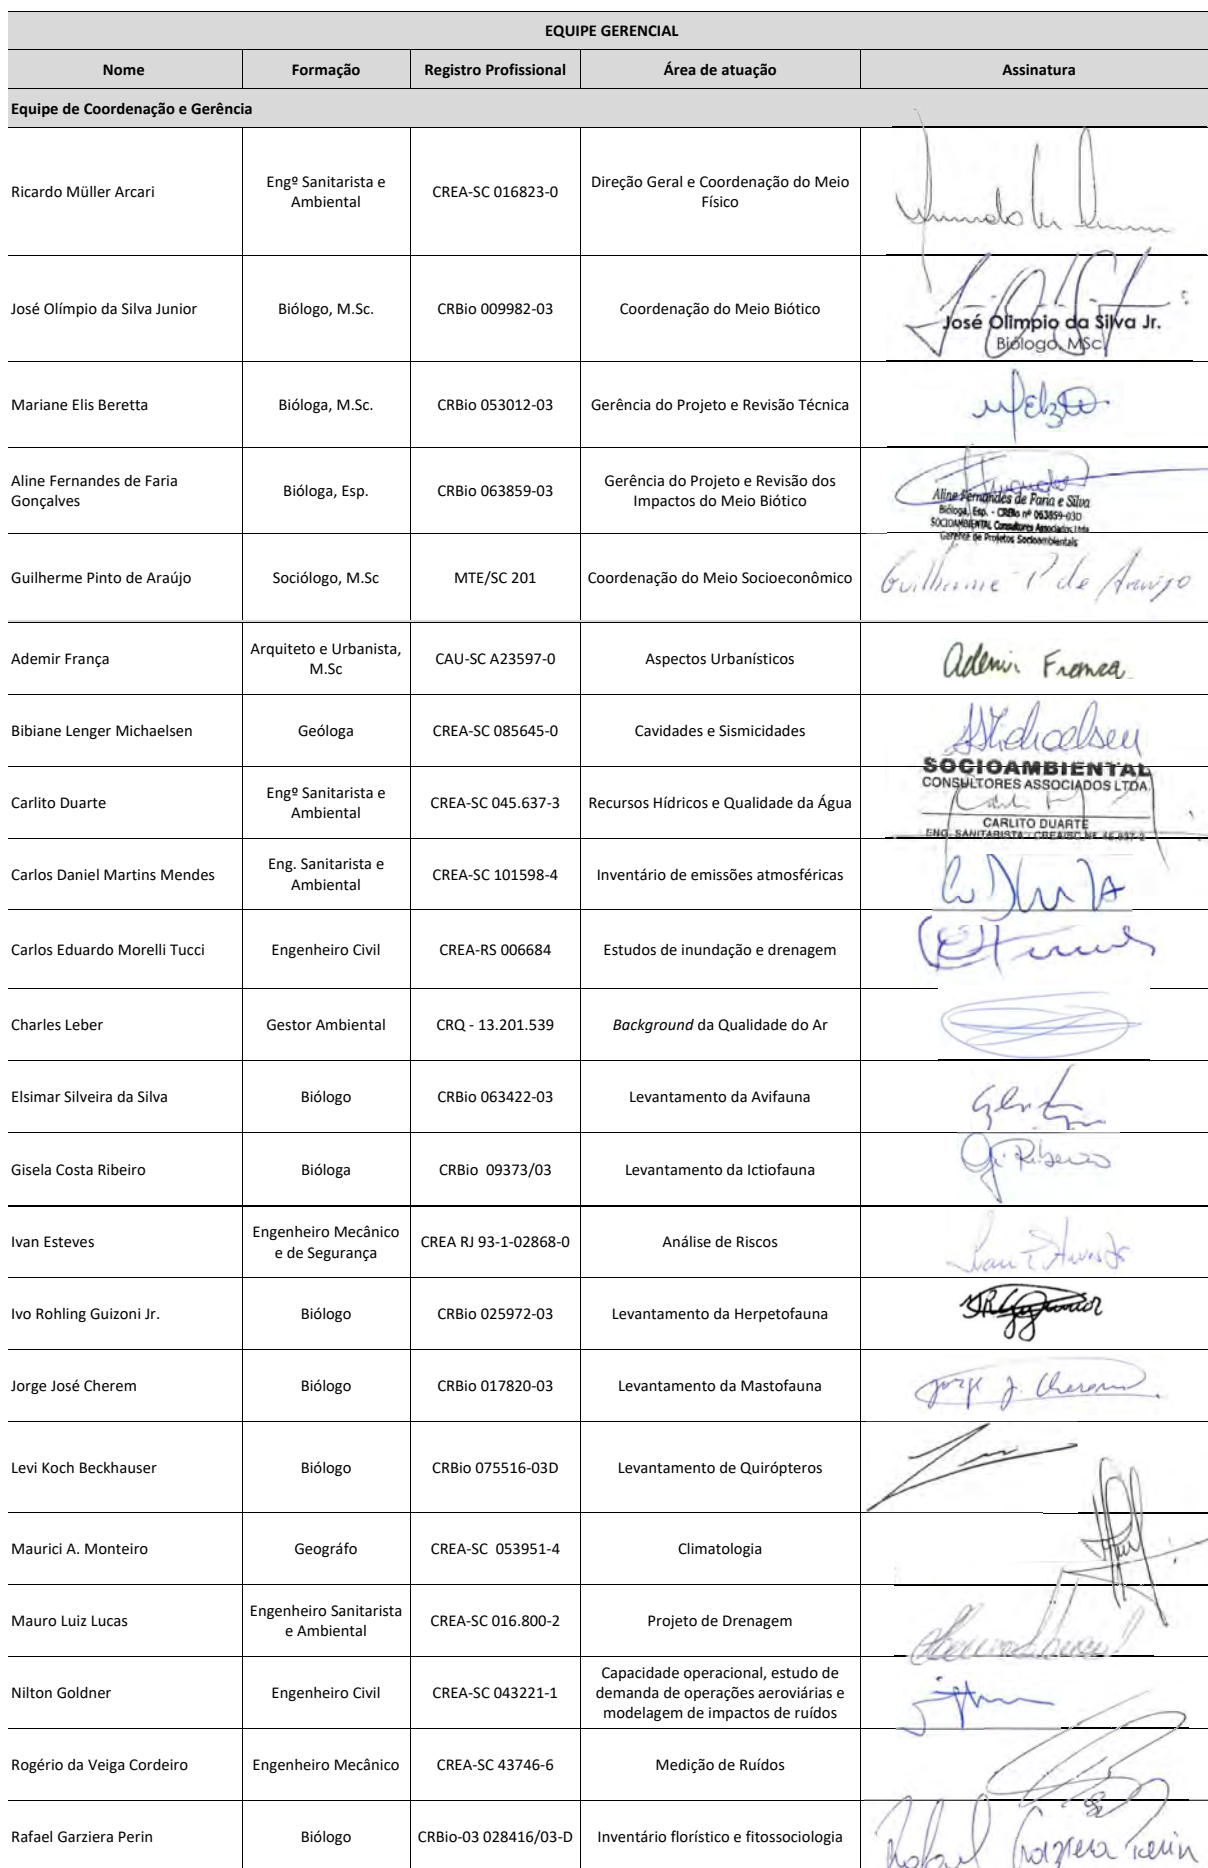 EQUIPE GERENCIAL
Nome Formação Registro Profissional Área de atuação Assinatura
Equipe de Coordenação e Gerência
Ricardo Müller Arcari Engº Sanitarista e Ambiental CREA-SC 016823-0 Direção Geral e Coordenação do Meio Físico
José Olímpio da Silva Junior Biólogo, M.Sc. CRBio 009982-03 Coordenação do Meio Biótico
José Olímpio da Silva Jr.
Biólogo, MSc
Mariane Elis Beretta Bióloga, M.Sc. CRBio 053012-03 Gerência do Projeto e Revisão Técnica
Aline Fernandes de Faria Gonçalves Bióloga, Esp. CRBio 063859-03 Gerência do Projeto e Revisão dos Impactos do Meio Biótico
Aline Fernandes de Faria e Silva
Bióloga, Esp. - CRBio nº 063859-03D
SOCIOAMBIENTAL Consultores Associados Ltda
Gerente de Projetos Socioambientais
Guilherme Pinto de Araújo Sociólogo, M.Sc MTE/SC 201 Coordenação do Meio Socioeconômico Guilherme P de Araujo
Ademir França Arquiteto e Urbanista, M.Sc CAU-SC A23597-0 Aspectos Urbanísticos Ademir França
Bibiane Lenger Michaelsen Geóloga CREA-SC 085645-0 Cavidades e Sismicidades Michaelsen
SOCIOAMBIENTAL
CONSULTORES ASSOCIADOS LTDA.
Carlito Duarte Engº Sanitarista e Ambiental CREA-SC 045.637-3 Recursos Hídricos e Qualidade da Água
CARLITO DUARTE
ENG. SANITARISTA - CREA/SC Nº
Carlos Daniel Martins Mendes Eng. Sanitarista e Ambiental CREA-SC 101598-4 Inventário de emissões atmosféricas
Carlos Eduardo Morelli Tucci Engenheiro Civil CREA-RS 006684 Estudos de inundação e drenagem
Charles Leber Gestor Ambiental CRQ - 13.201.539 Background da Qualidade do Ar
Elsimar Silveira da Silva Biólogo CRBio 063422-03 Levantamento da Avifauna
Gisela Costa Ribeiro Bióloga CRBio 09373/03 Levantamento da Ictiofauna Gi. Ribeiro
Ivan Esteves Engenheiro Mecânico e de Segurança CREA RJ 93-1-02868-0 Análise de Riscos
Ivo Rohling Guizoni Jr. Biólogo CRBio 025972-03 Levantamento da Herpetofauna
Jorge José Cherem Biólogo CRBio 017820-03 Levantamento da Mastofauna Jorge J. Cherem
Levi Koch Beckhauser Biólogo CRBio 075516-03D Levantamento de Quirópteros
Maurici A. Monteiro Geográfo CREA-SC 053951-4 Climatologia
Mauro Luiz Lucas Engenheiro Sanitarista e Ambiental CREA-SC 016.800-2 Projeto de Drenagem
Nilton Goldner Engenheiro Civil CREA-SC 043221-1 Capacidade operacional, estudo de demanda de operações aeroviárias e modelagem de impactos de ruídos
Rogério da Veiga Cordeiro Engenheiro Mecânico CREA-SC 43746-6 Medição de Ruídos
Rafael Garziera Perin Biólogo CRBio-03 028416/03-D Inventário florístico e fitossociologia Rafael Garziera Perin